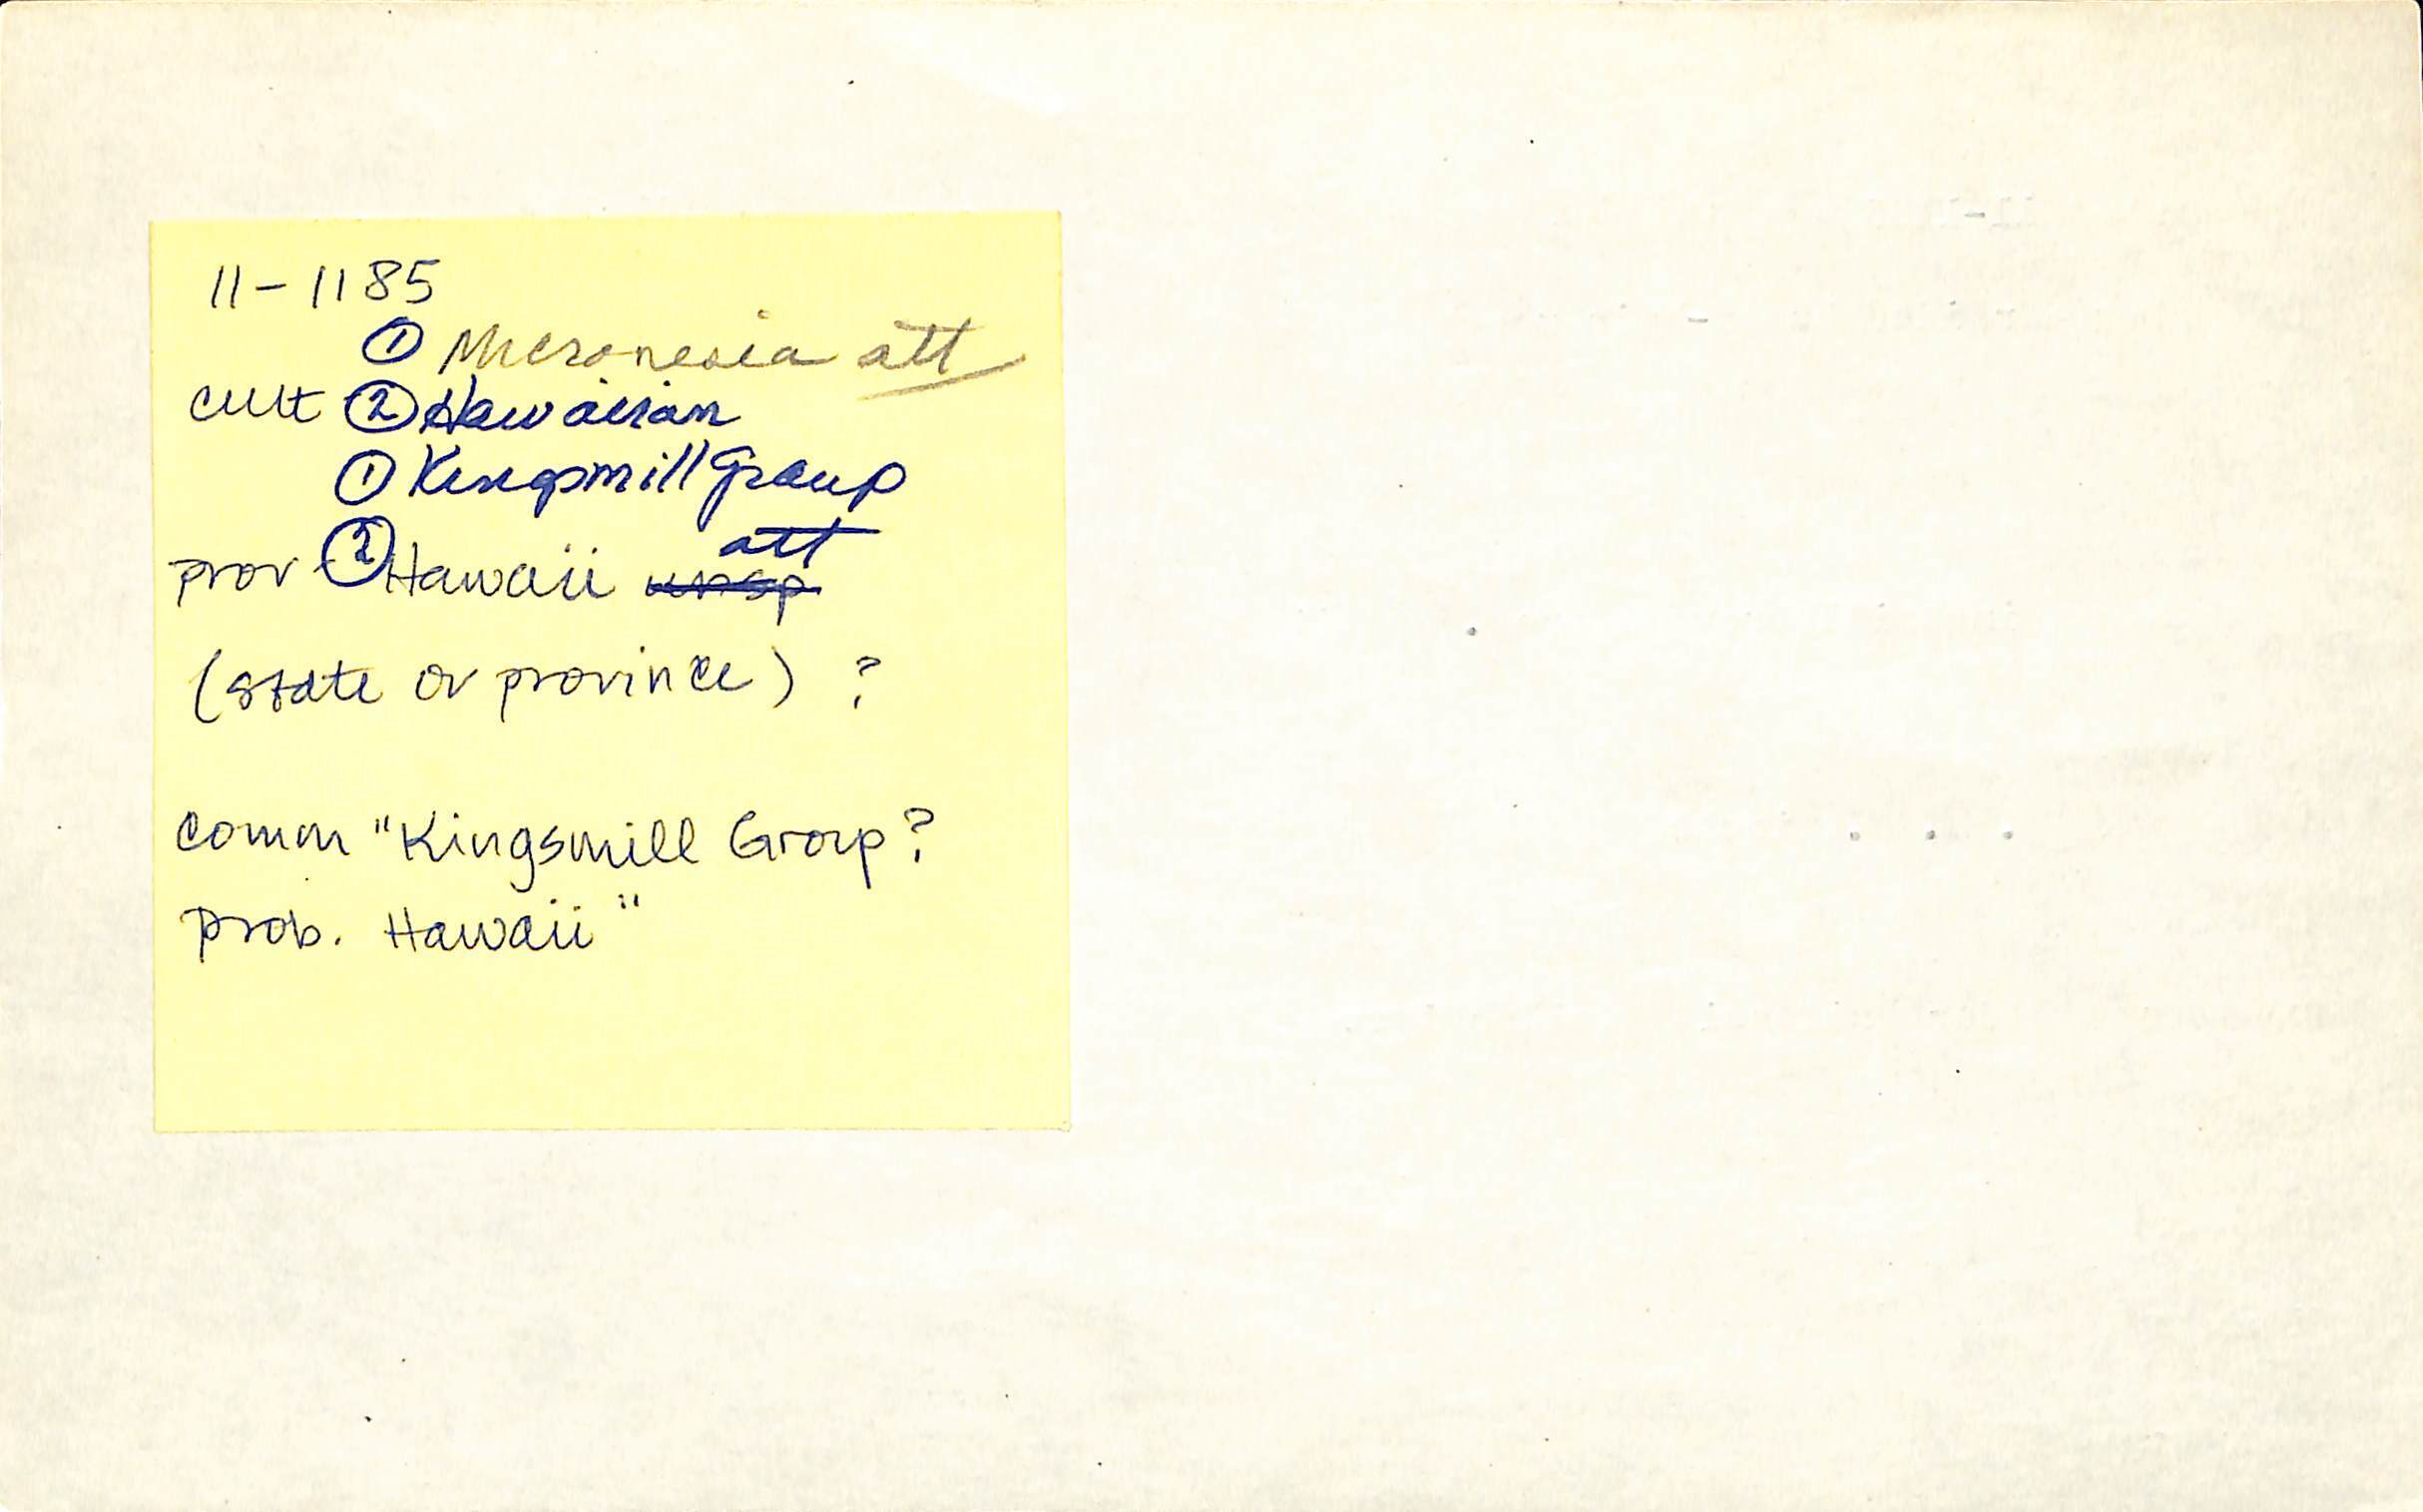 11-1185
① Micronesia att
cult ② Hawaiian
① Kingsmill Group
att
prov ② Hawaii unsp
(state or province) ?
comm "Kingsmill Group?
prob. Hawaii"